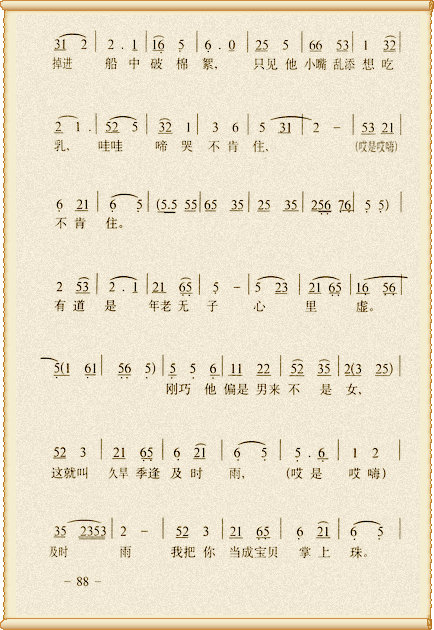 31 2 | 2 . 1 | 16 5 | 6 . 0 | 25 5 | 66 53 | 1 32 |
掉进 船 中 破 棉 絮, 只见 他 小嘴 乱添 想 吃
2 1 . | 52 5 | 32 1 | 3 6 | 5 31 | 2 - | 53 21 |
乳, 哇哇 啼 哭 不 肯 住, (哎是哎嗨)
6 21 | 6 5 | (5.5 55 | 65 35 | 25 35 | 256 76 | 5 5) |
不 肯 住。
2 53 | 2 . 1 | 21 65 | 5 - | 5 23 | 21 65 | 16 56 |
有 道 是 年老 无 子 心 里 虚。
5(1 61 | 56 5) | 5 5 6 | 11 22 | 52 35 | 2(3 25) |
刚巧 他 偏是 男来 不 是 女,
52 3 | 21 65 | 6 21 | 6 5 | 5 . 6 | 1 2 |
这就叫 久旱 季逢 及 时 雨, (哎 是 哎 嗨)
35 2353 | 2 - | 52 3 | 21 65 | 6 21 | 6 5 |
及时 雨 我把 你 当成宝贝 掌 上 珠。
- 88 -